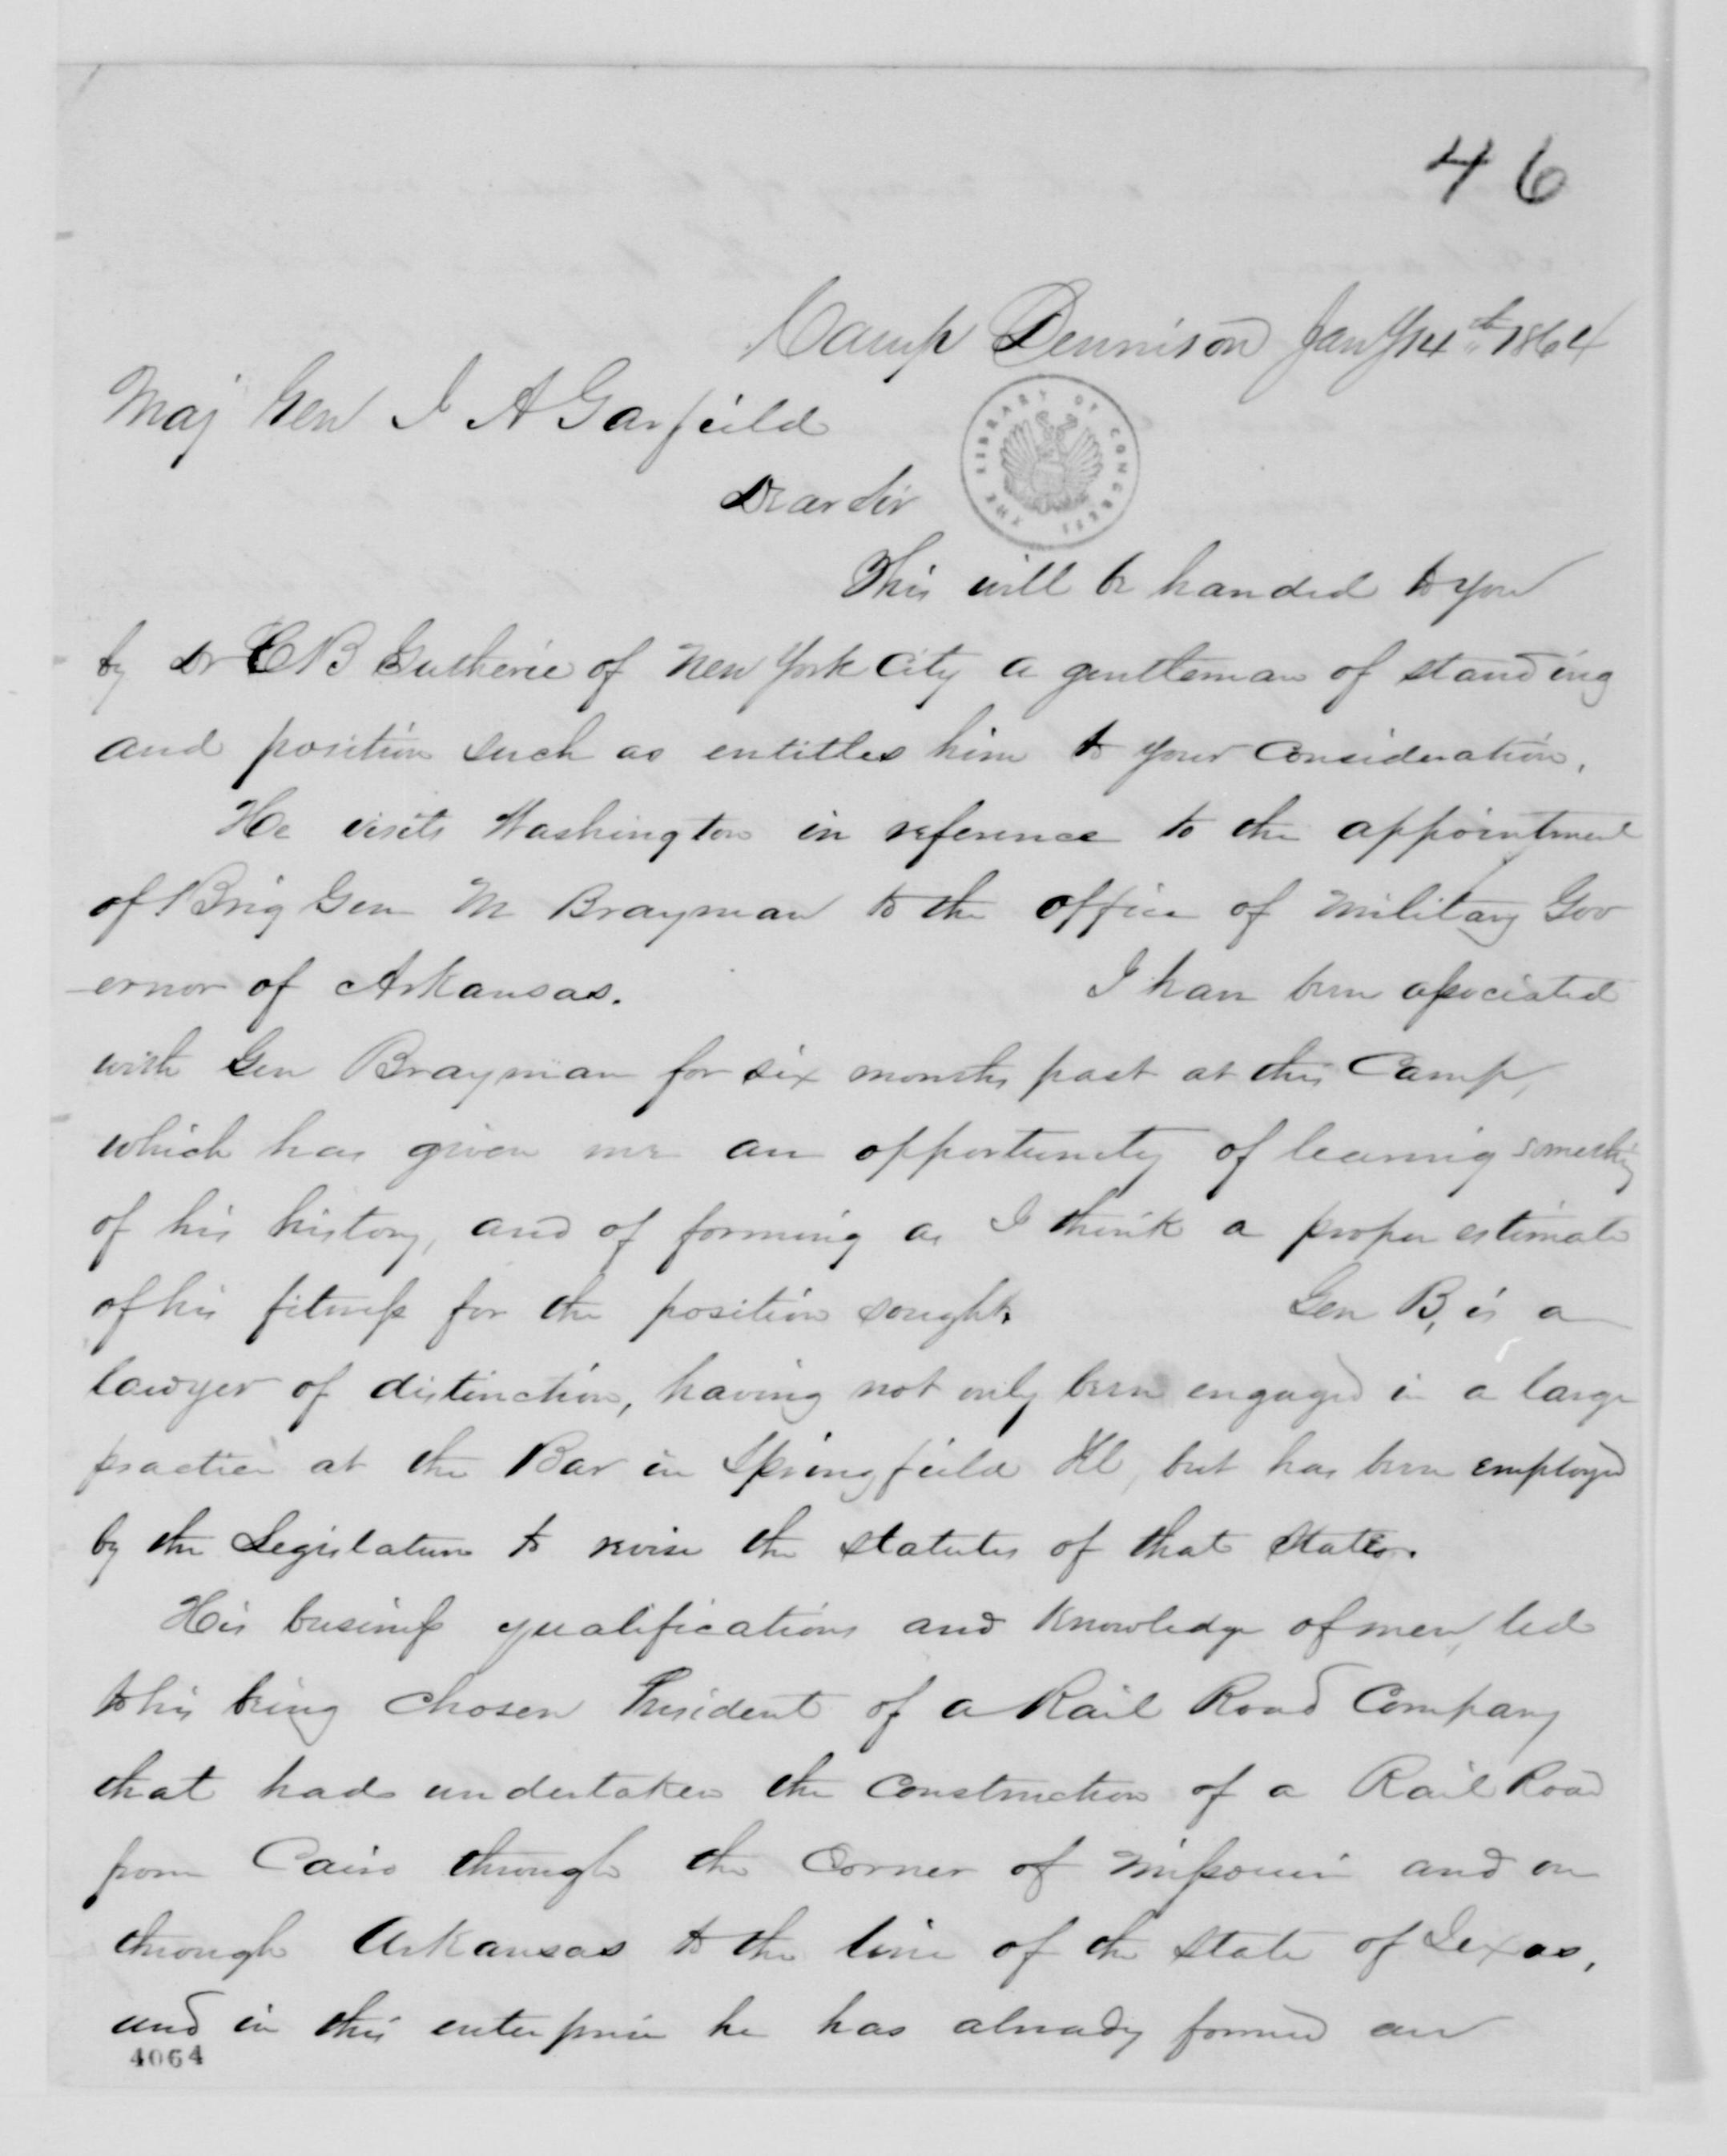 46
Camp Dennison Jany 14th 1864
Maj Gen J A Garfield
Dear Sir
THE LIBRARY OF CONGRESS
This will be handed to you
by Dr C B Gutherie of New York City a gentleman of standing
and position such as entitles him to your consideration.
He visits Washington in reference to the appointment
of Brig Gen M Brayman to the office of Military Gov
-ernor of Arkansas. I have been associated
with Gen Brayman for six months past at this Camp,
which has given me an opportunity of learning something
of his history, and of forming as I think a proper estimate
of his fitness for the position sought. Gen B, is a
lawyer of distinction, having not only been engaged in a large
practice at the Bar in Springfield Ill, but has been employed
by the Legislature to revise the statutes of that State.
His business qualifications and knowledge of men, led
to his being chosen President of a Rail Road Company
that had undertaken the construction of a Rail Road
from Cairo through the corner of Missouri and on
through Arkansas to the line of the State of Texas,
and in this enterprise he has already formed an
4064